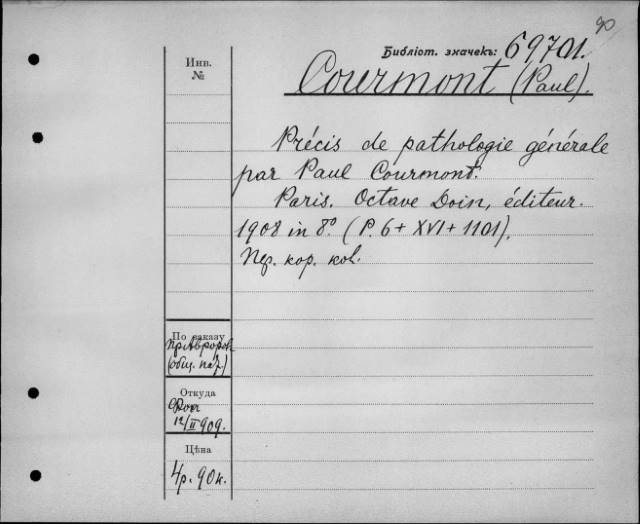 90
Библіот. значекъ: 69701.
Инв.
№
Courmont (Paul).
Précis de pathologie générale
par Paul Courmont.
Paris. Octave Doin, éditeur.
1908 in 8º. (P. 6 + XVI + 1101).
пер. кор. кол.
По заказу
пр. Авроров
(общ. пат.)
Откуда
12/II 909.
Цѣна
4р. 90к.